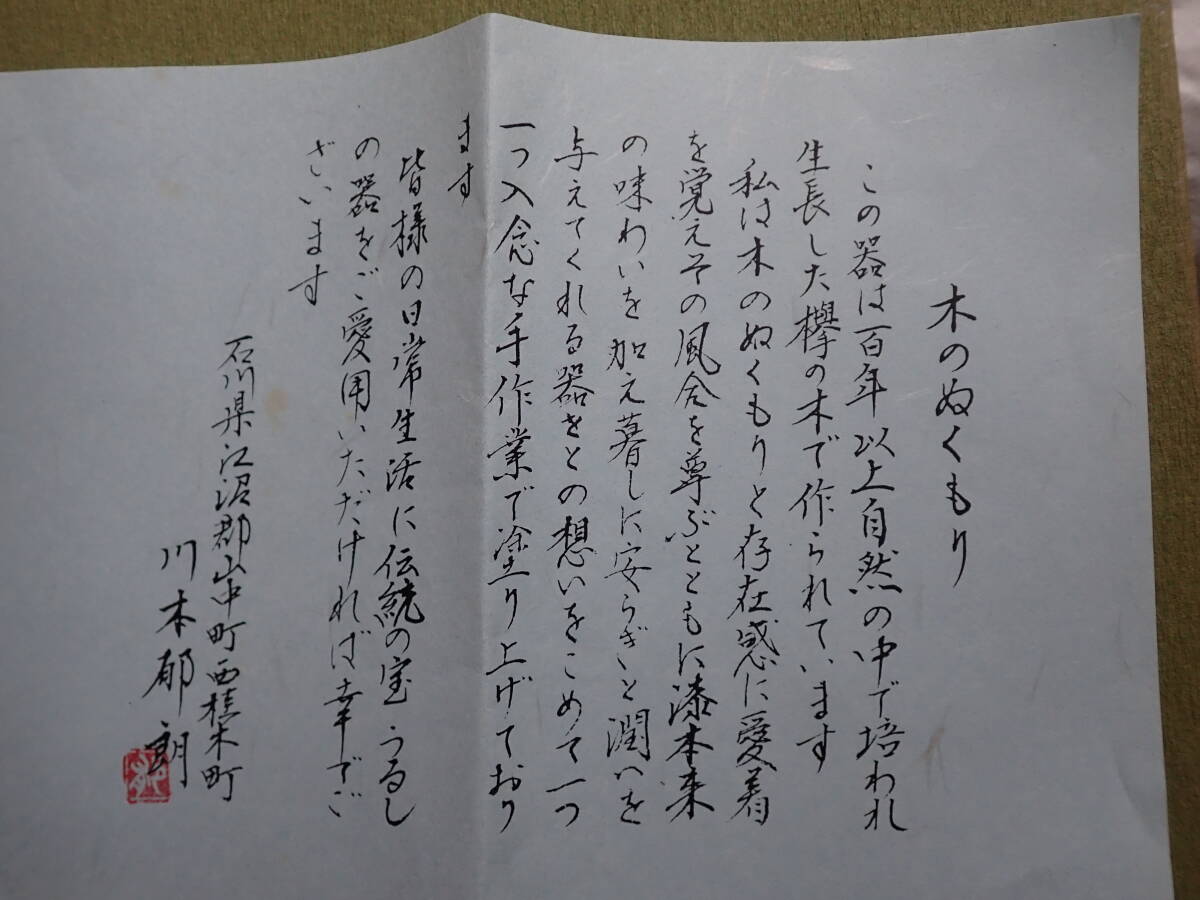 木のぬくもり
この器は百年以上自然の中で培われ
生長した欅の木で作られています
私は木のぬくもりと存在感に愛着
を覚えその風合を尊ぶとともに漆本来
の味わいを加え暮しに安らぎと潤いを
与えてくれる器をとの想いをこめて一つ
一つ入念な手作業で塗り上げており
ます
皆様の日常生活に伝統の宝うるし
の器をご愛用いただければ幸でご
ざいます
石川県江沼郡山中町西桂木町
川本郁朗